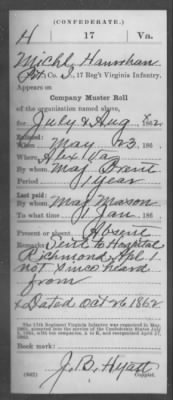 (CONFEDERATE.)
H 17 Va.
Michl Hanrahan
Pvt, Co. I, 17 Reg't Virginia Infantry.
Appears on
Company Muster Roll
of the organization named above,
for July & Aug, 1862.
Enlisted:
When May 23, 186
Where Alex Va
By whom Maj Brent
Period 1 year
Last paid:
By whom Maj Mason
To what time 1 Jan, 186
Present or absent Absent
Remarks: Sent to Hospital
Richmond Apl 1
not since heard
from
Dated Oct 26 1862
Book mark:
J. B. Hyatt
(642) Copyist.